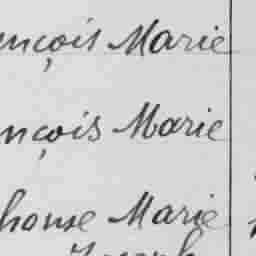 nçois Marie
nçois Marie
honse Marie
Joseph